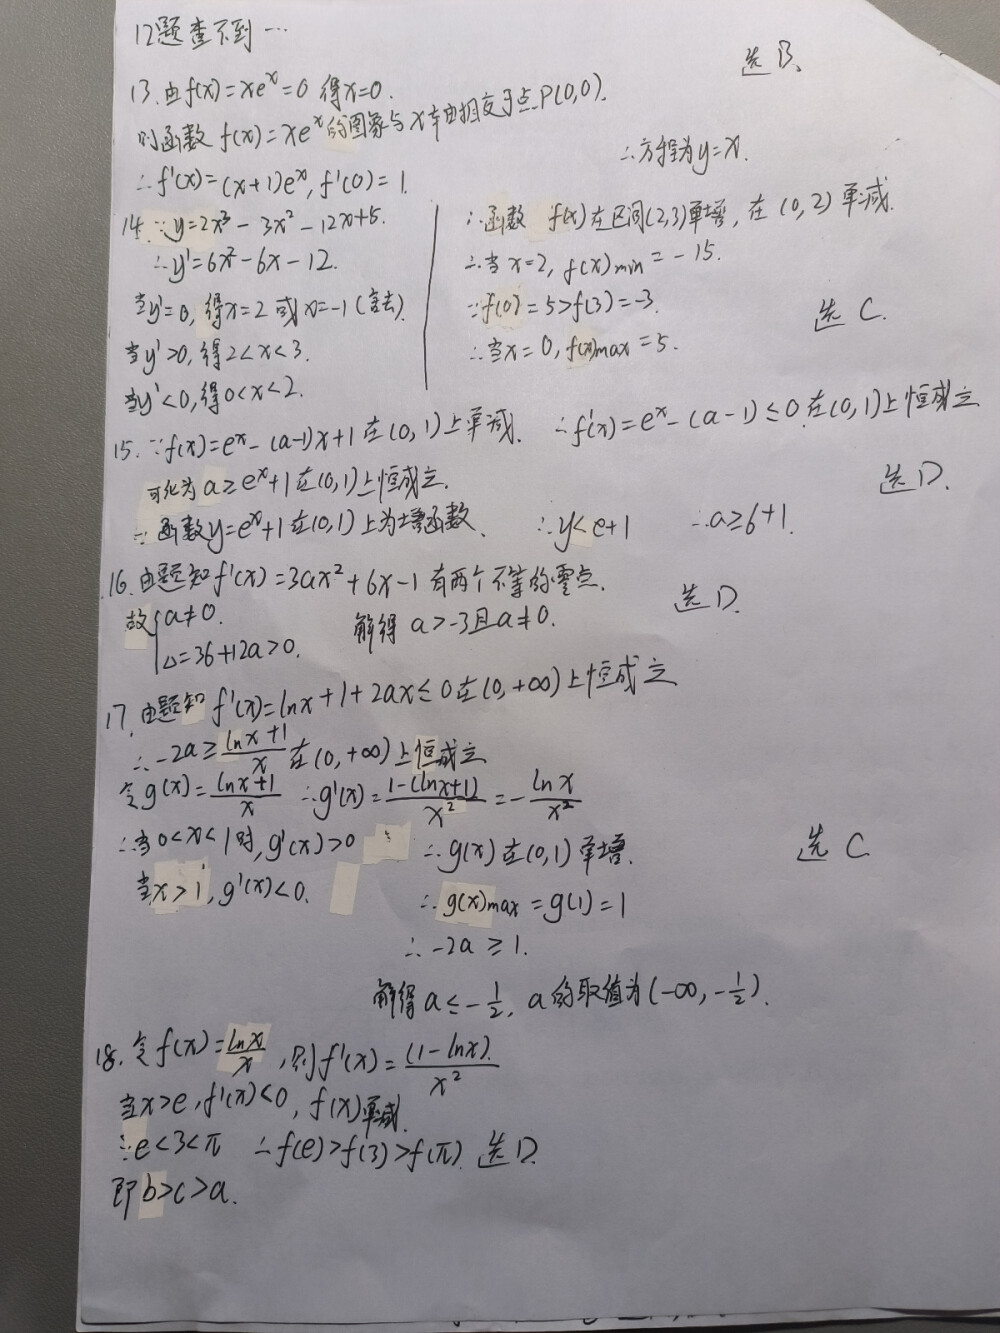 12题查不到…
选B.
13.由f(x)=xeˣ=0 得x=0.
则函数 f(x)=xeˣ的图象与x轴相交于点P(0,0).
∴f'(x)=(x+1)eˣ, f'(0)=1.
∴方程为y=x.
14.∵y=2x³-3x²-12x+5.
∴y'=6x²-6x-12.
当y'=0,得x=2或x=-1(舍去).
当y'>0,得2<x<3.
当y'<0,得0<x<2.
∴函数 f(x)在区间(2,3)单增,在(0,2)单减.
∴当x=2, f(x)min=-15.
∵f(0)=5>f(3)=-3.
选C.
∴当x=0,f(x)max=5.
15.∵f(x)=eˣ-(a-1)x+1在(0,1)上单减. ∴f'(x)=eˣ-(a-1)≤0在(0,1)上恒成立
可化为a≥eˣ+1在(0,1)上恒成立.
选D.
∵函数y=eˣ+1在(0,1)上为增函数. ∴y<e+1 ∴a≥6+1.
16.由题知f'(x)=3ax²+6x-1有两个不等的零点.
选D.
故{a≠0. 解得a>-3且a≠0.
△=36+12a>0.
17.由题知f'(x)=lnx+1+2ax≤0在(0,+∞)上恒成立
∴-2a≥(lnx+1)/x在(0,+∞)上恒成立
令g(x)=(lnx+1)/x ∴g'(x)=(1-(lnx+1))/x²=-lnx/x²
∴当0<x<1时,g'(x)>0 ∴g(x)在(0,1)单增.
选C
当x>1,g'(x)<0. ∴g(x)max=g(1)=1
∴-2a≥1.
解得a≤-1/2, a的取值为(-∞,-1/2).
18.令f(x)=lnx/x,则f'(x)=(1-lnx)/x²
当x>e,f'(x)<0,f(x)单减.
∵e<3<π ∴f(e)>f(3)>f(π). 选D.
即b>c>a.